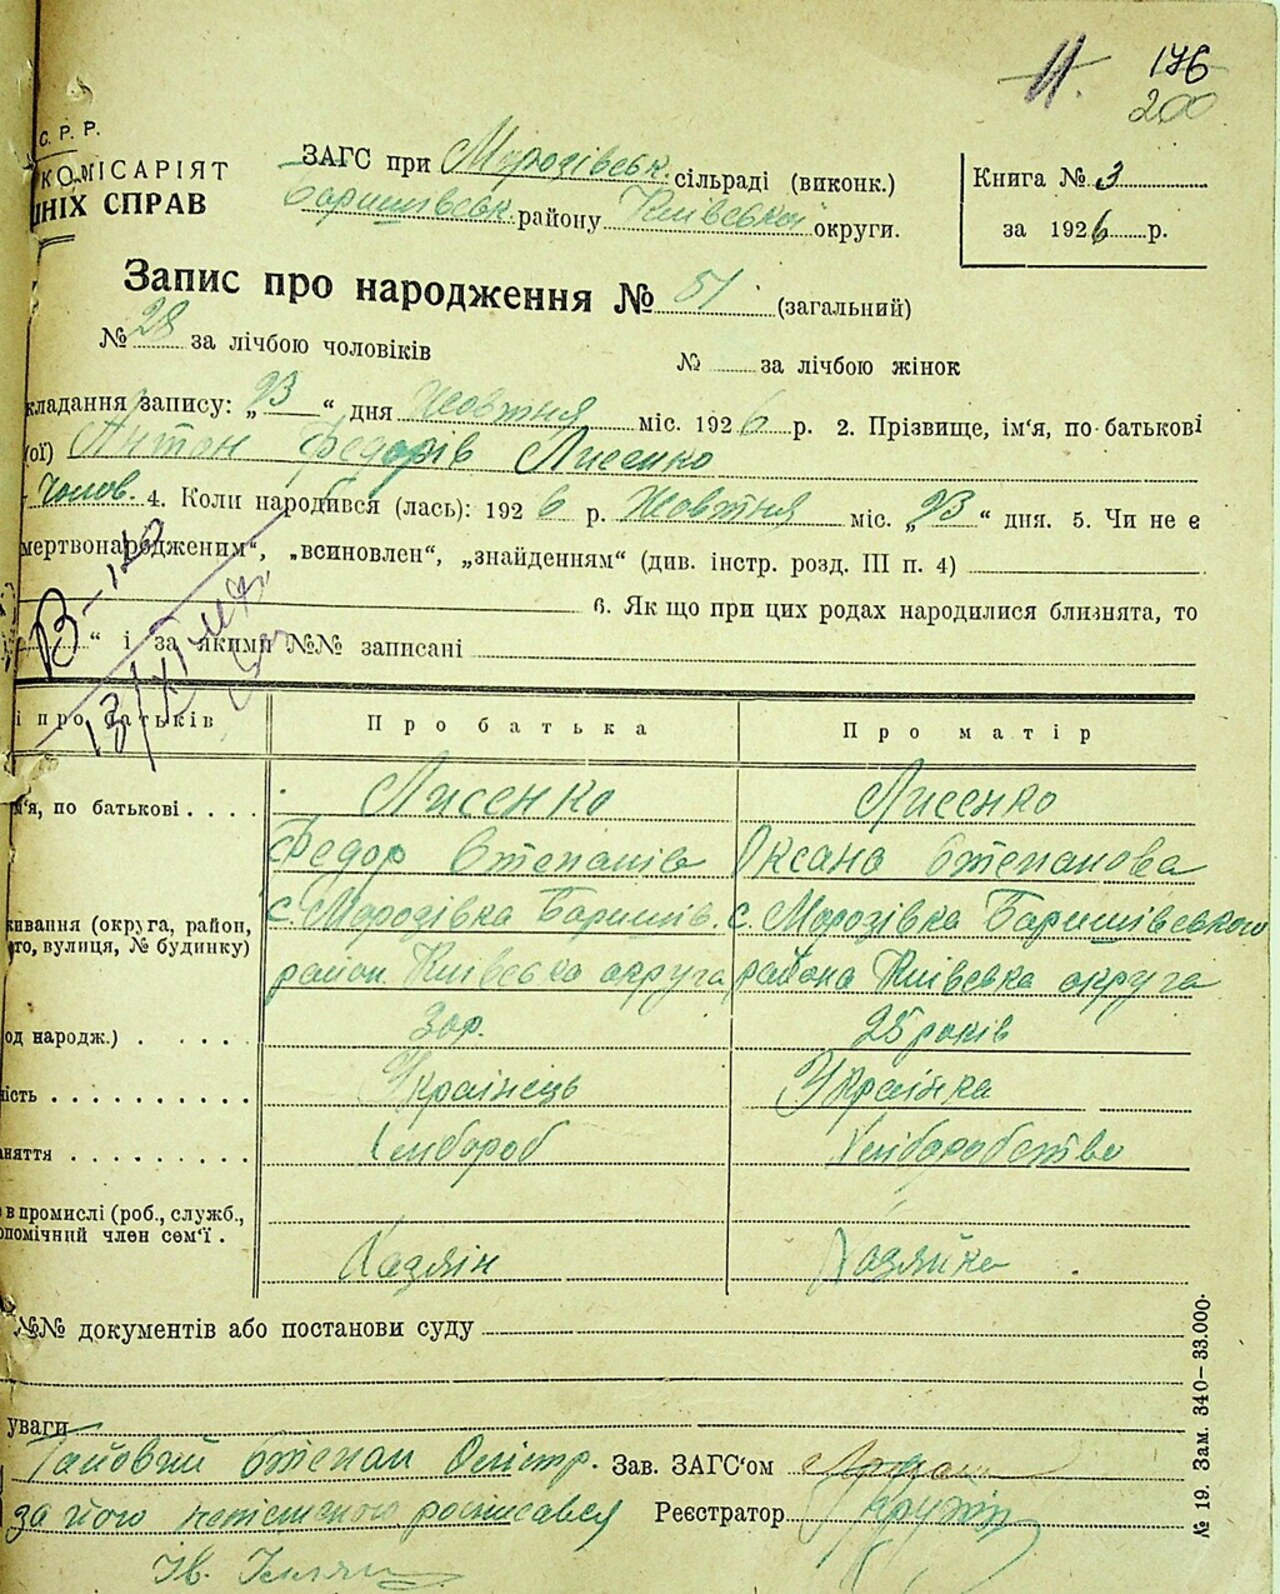 176
200
С. Р. Р.
КОМІСАРІЯТ
ШНІХ СПРАВ
ЗАГС при Морозівськ. сільраді (виконк.)
Баришівськ. району Київської округи.
Книга № 3
за 1926 р.
Запис про народження № 51 (загальний)
№ 28 за лічбою чоловіків № за лічбою жінок
кладання запису: „23“ дня Жовтня міс. 1926 р. 2. Прізвище, ім‘я, по-батькові
(ої) Антон Федорів Лисенко
Чолов. 4. Коли народився (лась): 1926 р. Жовтня міс. „23“ дня. 5. Чи не є
мертвонародженим“, „всиновлен“, „знайденням“ (див. інстр. розд. III п. 4)
6. Як що при цих родах народилися близнята, то
“ і за якими №№ записані
і про батьків Про батька Про матір
м‘я, по батькові Лисенко Лисенко
Федор Степанів Оксана Степанова
живання (округа, район, с. Морозівка Баришів. с. Морозівка Баришівського
го, вулиця, № будинку)
район. Київська округа района Київська округа
од народж.) 30р. 25 років
ність Украінець Украінка
аняття Хлібороб Хліборобство
в промислі (роб., служб.,
опомічний член сем‘ї . Хазяїн Хазяйка
№№ документів або постанови суду
уваги
Степан Зав. ЗАГС‘ом
за його неписьменого росписався Реєстратор
Ів.
№ 19. Зам. 340–33.000.